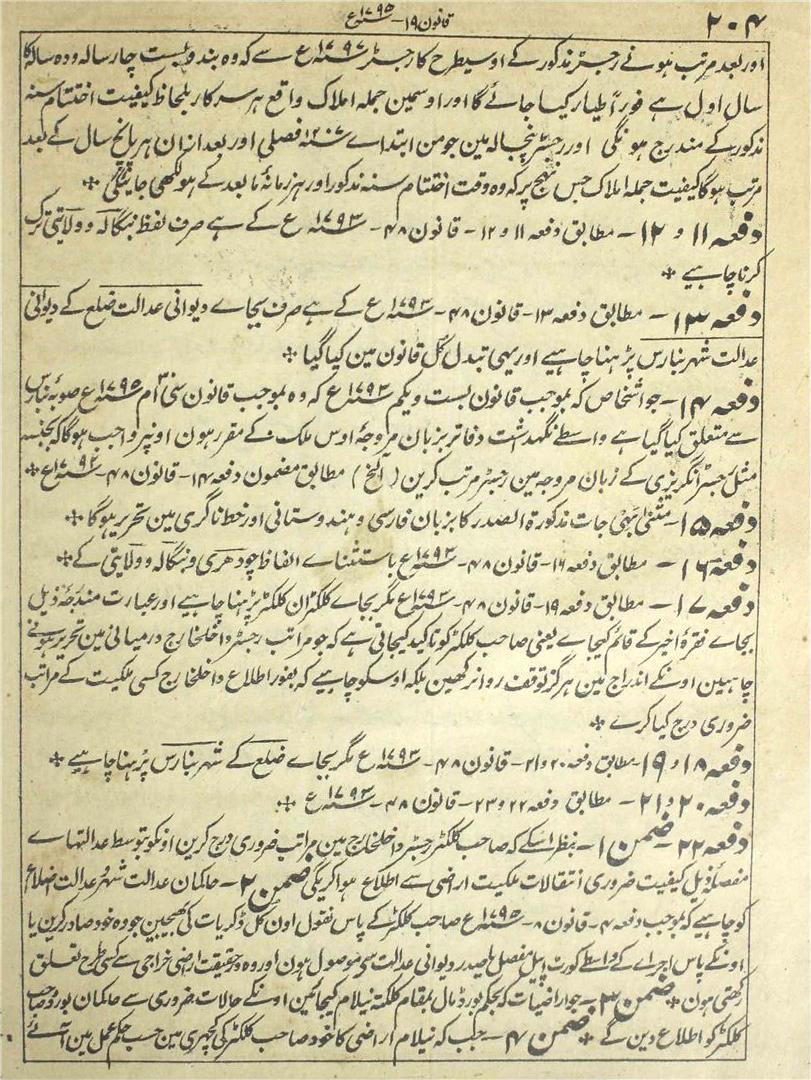 ۲۰۴
قانون ۱۹ - ۱۷۹۵ سنہ ع
اور بعد مرتب ہونے رجسٹر مذکور کے اوسیطرح کا رجسٹر ۱۷۹۷ سنہ ع سے کہ وہ بندوبست چار سالہ و دہ سالہ کا
سال اول ہے فوراً طیار کیا جائے گا اور اوسمین جملہ املاک واقع ہر سرکار بلحاظ کیفیت اختتام سنہ
مذکور کے مندرج ہونگی اور رجسٹر پنجسالہ مین جو من ابتداے ۱۲۰۷ سنہ فصلی اور بعد ازان ہر پانچ سال کے بعد
مرتب ہوگا کیفیت جملہ املاک جس نہج پر کہ وہ وقت اختتام سنہ مذکور اور ہر زمانۂ مابعد کے ہو لکھی جاینگی ❊
دفعہ ۱۱ و ۱۲ - مطابق دفعہ ۱۱ و ۱۲ - قانون ۴۸ - ۱۷۹۳ سنہ ع کے ہے صرف لفظ بنگالہ و ولایتی ترک
کرنا چاہیے ❊
دفعہ ۱۳ - مطابق دفعہ ۱۳ - قانون ۴۸ - ۱۷۹۳ سنہ ع کے ہے صرف بجاے دیوانی عدالت ضلع کے دیوانی
عدالت شہر بنارس پڑہنا چاہیے اور یہی تبدل کل قانون مین کیا گیا ❊
دفعہ ۱۴ - جو اشخاص کہ بموجب قانون بست ویکم ۱۷۹۳ سنہ ع کہ وہ بموجب قانون سی ام ۱۷۹۵ سنہ ع صوبۂ بنارس
سے متعلق کیا گیا ہے واسطے نگہداشت دفاتر بزبان مروجۂ اوس ملک کے مقرر ہون اونپر واجب ہوگا کہ بجنسہ
مثل رجسٹر انگریزی کے زبان مروجہ مین رجسٹر مرتب کرین (الخ) مطابق مضمون دفعہ ۱۴ - قانون ۴۸ - ۱۷۹۳ سنہ ع ❊
دفعہ ۱۵ - مثنیٰ بہی جات مذکورۃ الصدر کا بزبان فارسی و ہندوستانی اور خط ناگری مین تحریر ہوگا ❊
دفعہ ۱۶ - مطابق دفعہ ۱۶ - قانون ۴۸ - ۱۷۹۳ سنہ ع باستثناے الفاظ چودھری و بنگالہ و ولایتی کے ❊
دفعہ ۱۷ - مطابق دفعہ ۱۹ - قانون ۴۸ - ۱۷۹۳ سنہ ع مگر بجاے کلکٹران کلکٹر پڑہنا چاہیے اور عبارت مندرجۂ ذیل
بجاے فقرۂ اخیر کے قائم کیجاے یعنی صاحب کلکٹر کو تاکید کیجاتی ہے کہ جو مراتب رجسٹر داخلخارج درمیانی مین تحریر ہونے
چاہیین اونکے اندراج مین ہرگز توقف روا نرکھین بلکہ اوسکو چاہیے کہ بفور اطلاع داخلخارج کسی ملکیت کے مراتب
ضروری درج کیا کرے ❊
دفعہ ۱۸ و ۱۹ - مطابق دفعہ ۲۰ و ۲۱ - قانون ۴۸ - ۱۷۹۳ سنہ ع مگر بجاے ضلع کے شہر بنارس پڑہنا چاہیے ❊
دفعہ ۲۰ و ۲۱ - مطابق دفعہ ۲۲ و ۲۳ - قانون ۴۸ - ۱۷۹۳ سنہ ع ❊
دفعہ ۲۲ - ضمن ۱ - بنظر اسکے کہ صاحب کلکٹر رجسٹر داخلخارج مین مراتب ضروری درج کرین اونکو بتوسط عدالتہاے
مفصلۂ ذیل کیفیت ضروری انتقالات ملکیت اراضی سے اطلاع ہوا کریگی ضمن ۲ - حاکمان عدالت شہر و عدالت اضلاع
کو چاہیے کہ بموجب دفعہ ۴ - قانون ۸ - ۱۷۹۵ سنہ ع صاحب کلکٹر کے پاس نقول اون کل ڈکریات کی بھیجین جو وہ خود صادر کرین یا
اونکے پاس اجراے کے واسطے کورٹ اپیل مفصل یا صدر دیوانی عدالت سے موصول ہون اور وہ حقیقت اراضی خراجی سے کسی طرح تعلق
رکھتی ہون ❊ ضمن ۳ - جو اراضیات کہ بحکم بورڈ مال بمقام کلکتہ نیلام کیجائین اونکے حالات ضروری سے حاکمان بورڈ صاحب
کلکٹر کو اطلاع دین گے ❊ ضمن ۴ - جبکہ نیلام اراضی کا خود صاحب کلکٹر کی کچہری مین حسب حکم عمل مین آئے